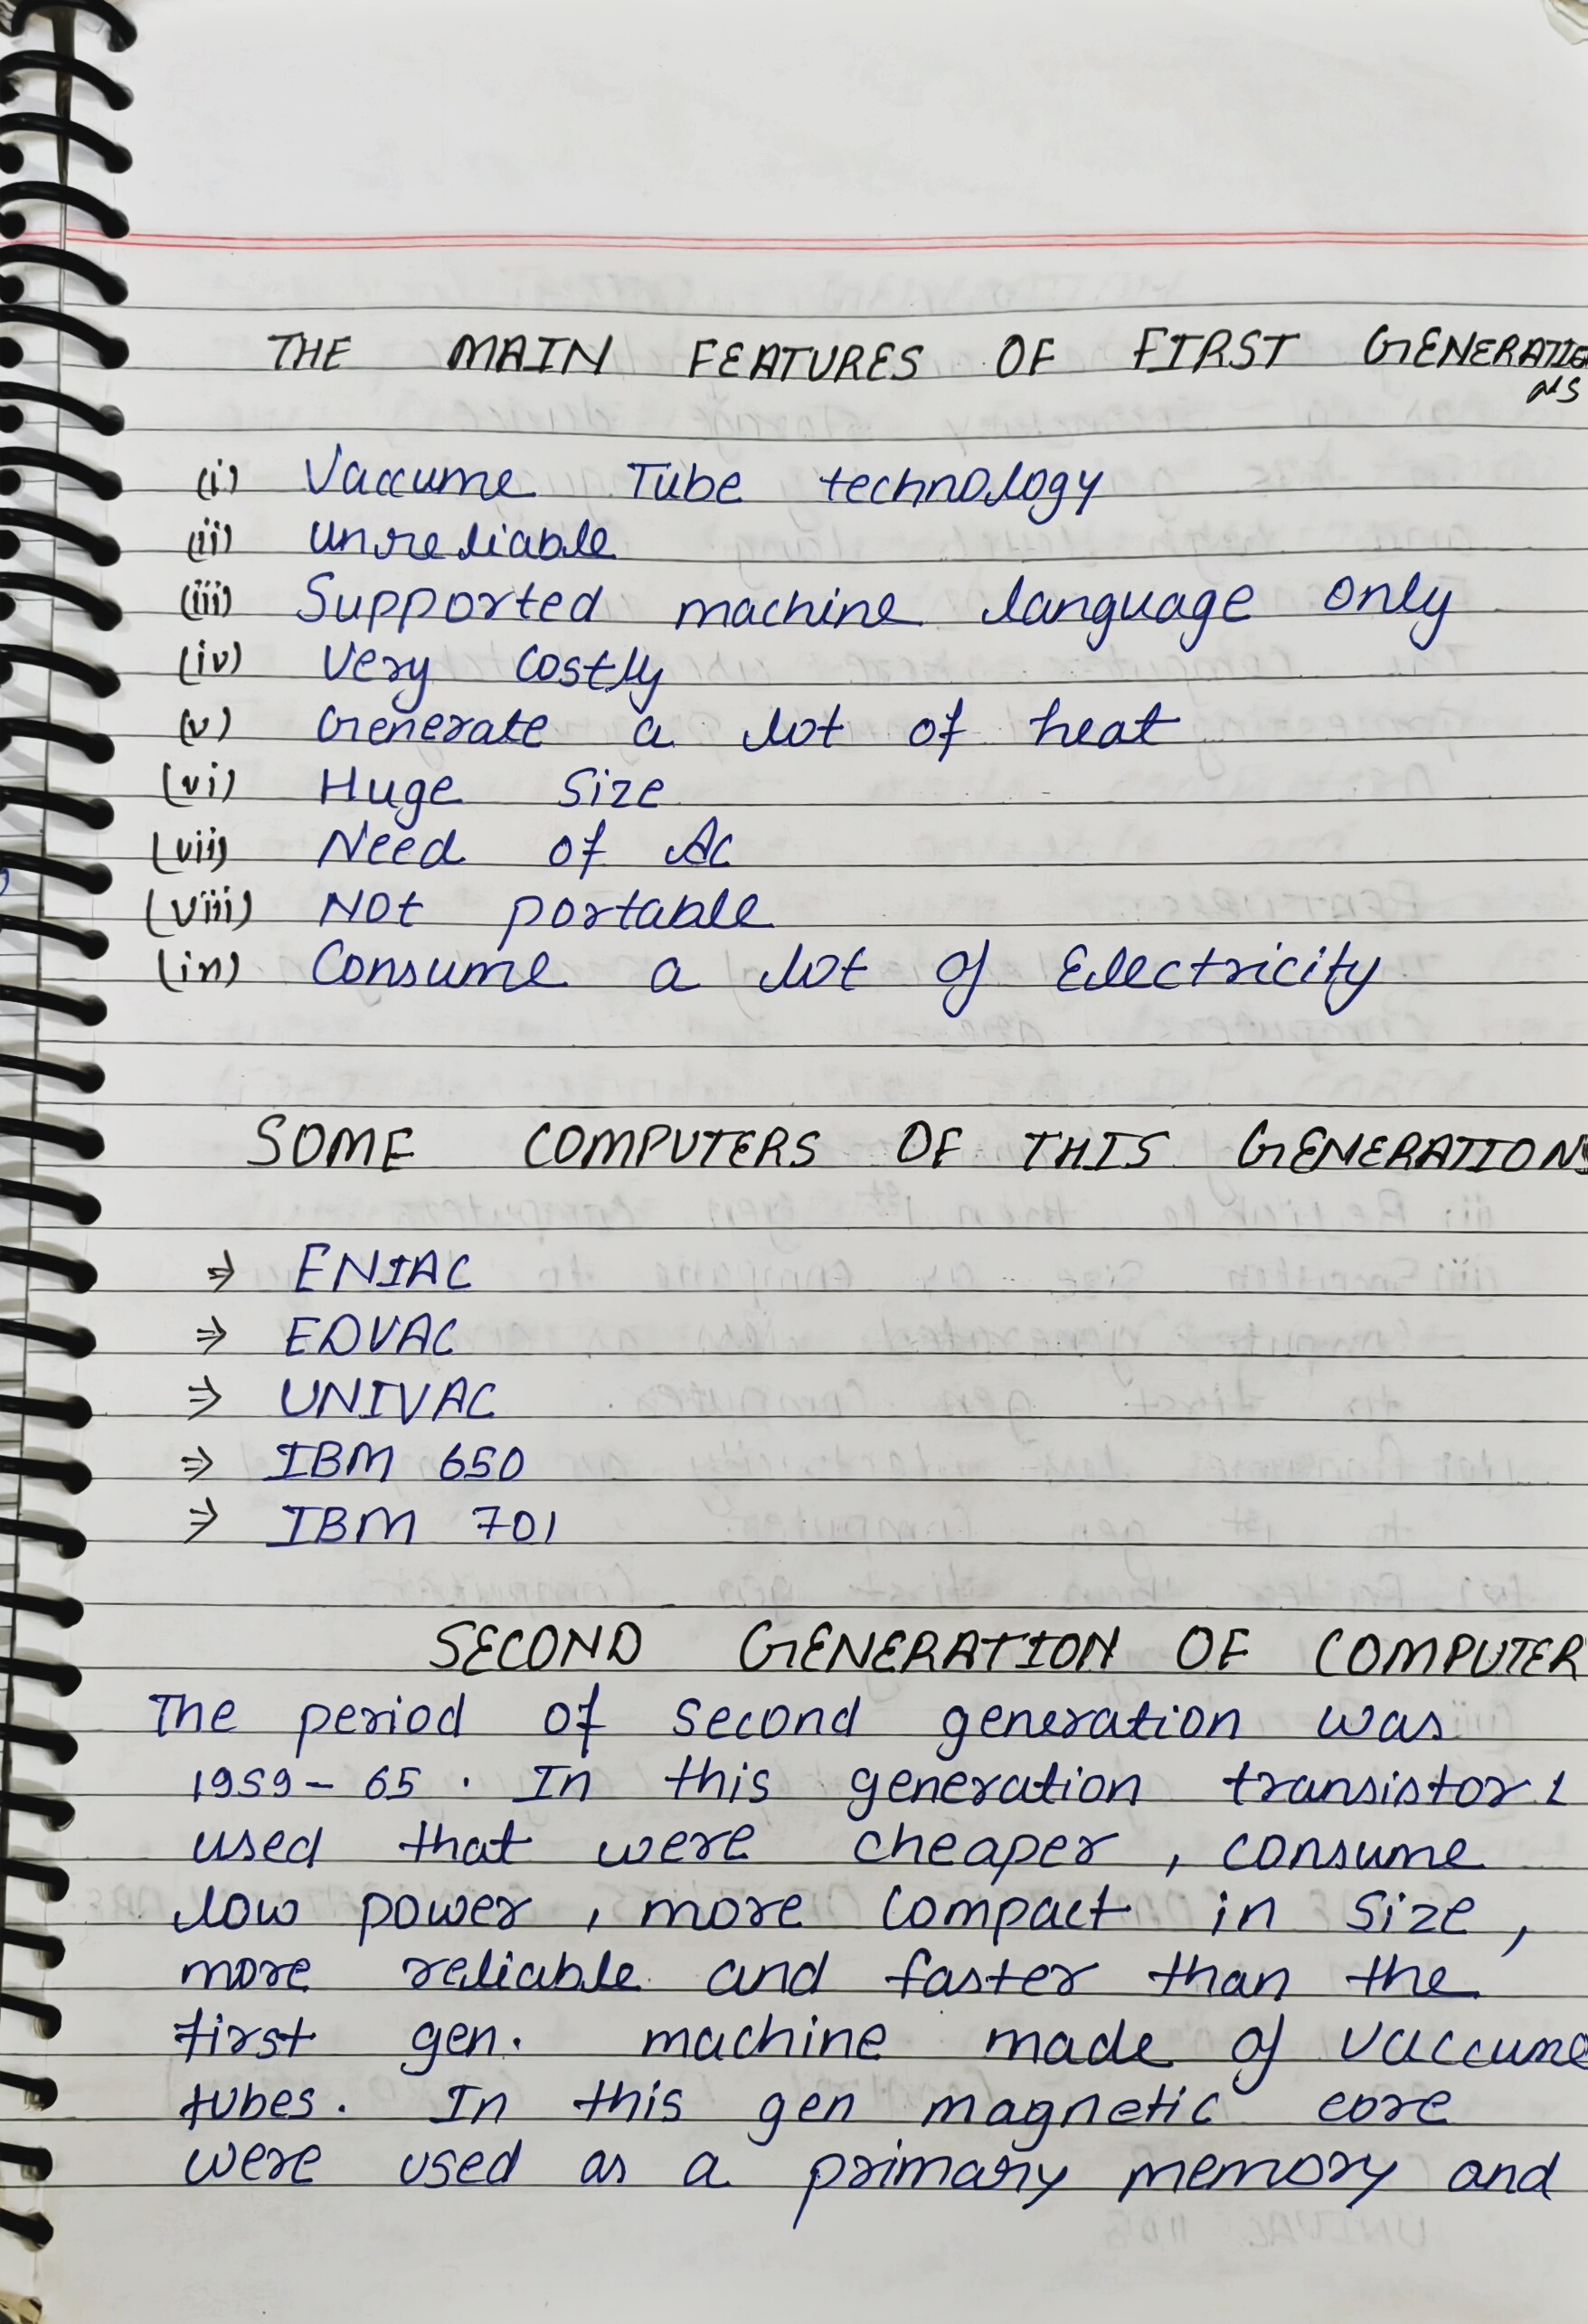 THE MAIN FEATURES OF FIRST GENERATIO
NS
(i) Vaccume Tube technology
(ii) Unreliable
(iii) Supported machine language only
(iv) Very Costly
(v) Generate a lot of heat
(vi) Huge Size
(vii) Need of Ac
(viii) Not portable
(ix) Consume a lot of Electricity
SOME COMPUTERS OF THIS GENERATIONS
⇒ ENIAC
⇒ EDVAC
⇒ UNIVAC
⇒ IBM 650
⇒ IBM 701
SECOND GENERATION OF COMPUTER
The period of second generation was
1959-65. In this generation transistor
used that were cheaper, consume
low power, more compact in size,
more reliable and faster than the
first gen. machine made of vaccume
tubes. In this gen magnetic core
were used as a primary memory and